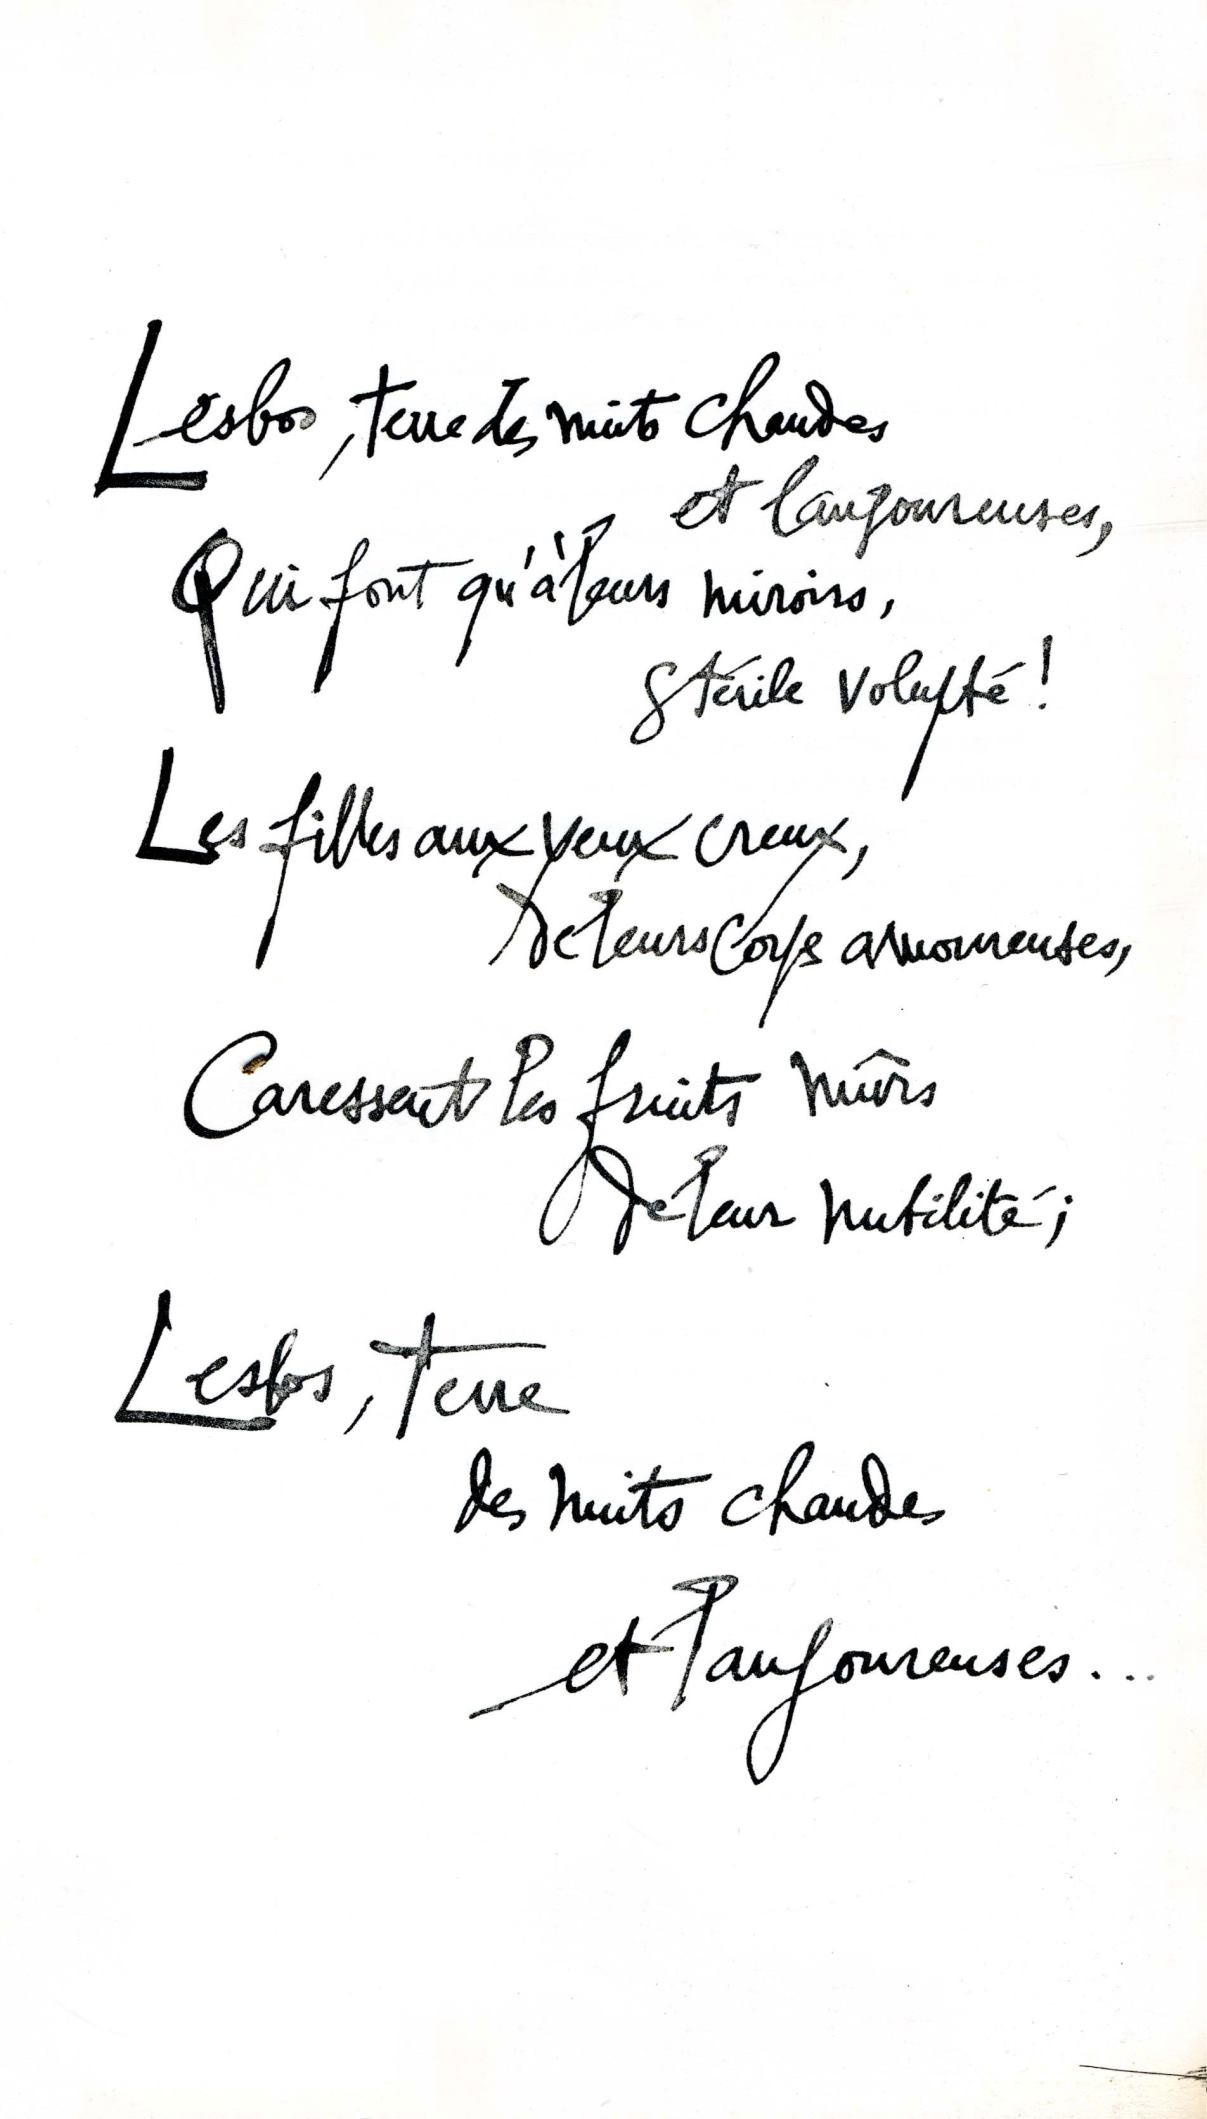 Lesbos, terre des nuits chaudes
et langoureuses,
Qui font qu'à leurs miroirs,
stérile volupté !
Les filles aux yeux creux,
de leurs corps amoureuses,
Caressent les fruits mûrs
de leur nubilité ;
Lesbos, terre
des nuits chaudes
et langoureuses...